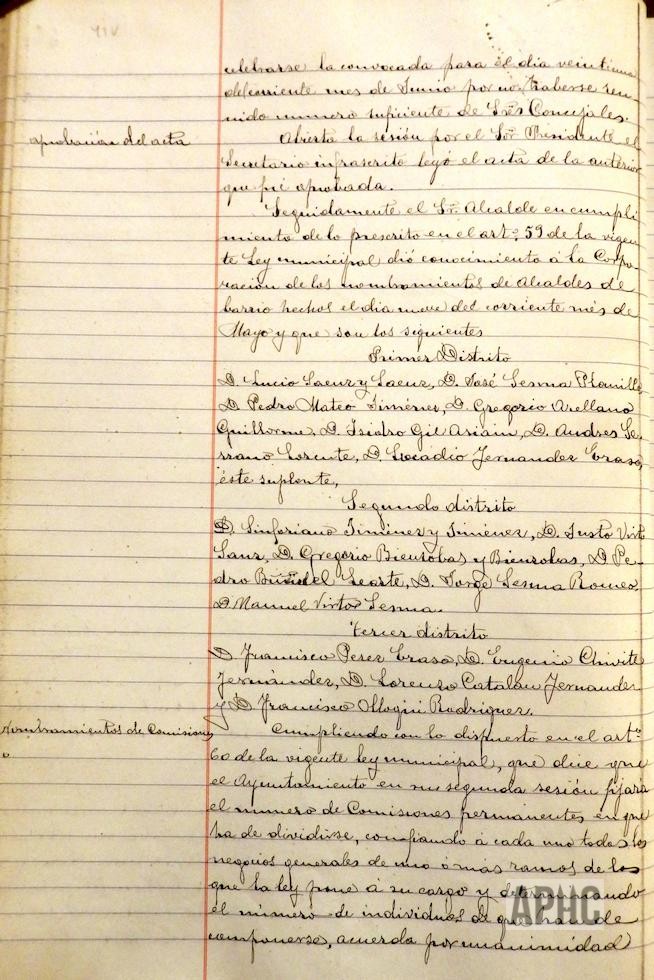 celebrarse la convocada para el dia veintiuno
del corriente mes de Junio por no haberse reu-
nido numero suficiente de Sres Concejales.
aprobacion del acta
Abierta la sesión por el Sor. Presidente el
Secretario infrascrito leyó el acta de la anterior
que fué aprobada.
Seguidamente el Sr. Alcalde en cumpli
miento de lo prescrito en el artº. 59 de la vigen
te Ley municipal dió conocimiento á la Corpo
ración de los nombramientos de Alcaldes de
barrio hechos el dia nueve del corriente mes de
Mayo y que son los siguientes
Primer Distrito
D. Lucio Saenz y Saenz, D. José Sesma
D. Pedro Mateo Jiménez, D. Gregorio Arellano
Guillorme, D. Isidro Gil Asiain, D. Andres Se-
rrano Lorente, D. Leocadio Fernandez Eraso,
éste suplente,
Segundo distrito
D. Sinforiano Jiménez y Jiménez, D. Justo Virto
Sanz, D. Gregorio Bienzobas y Bienzobas, D Pe-
dro Buñuel Learte, D. Jorge Sesma Romeo,
D. Manuel Virto Sesma.
tercer distrito
D. Francisco Perez Eraso, D. Eugenio Chivite
Fernández, D. Lorenzo Catalán Fernandez
y D. Francisco Olloqui Rodriguez.
Nombramientos de Comisiones
Cumpliendo con lo dispuesto en el artº
60 de la vigente ley municipal, que dice que
el Ayuntamiento en su segunda sesión fijará
el número de Comisiones permanentes en que
ha de dividirse, confiando á cada uno todos los
negocios generales de uno ó más ramos de los
que la ley pone á su cargo y determinando
el número de individuos de que han de
componerse, acuerda por unanimidad
APHC